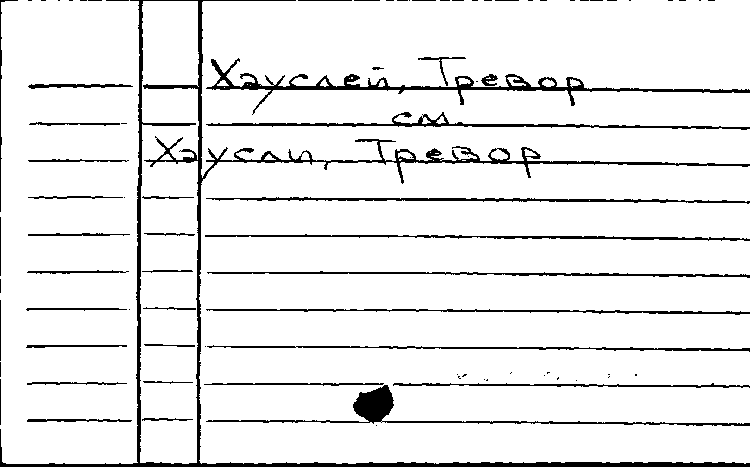 Хауслей, Тревор
см.
Хаусли, Тревор